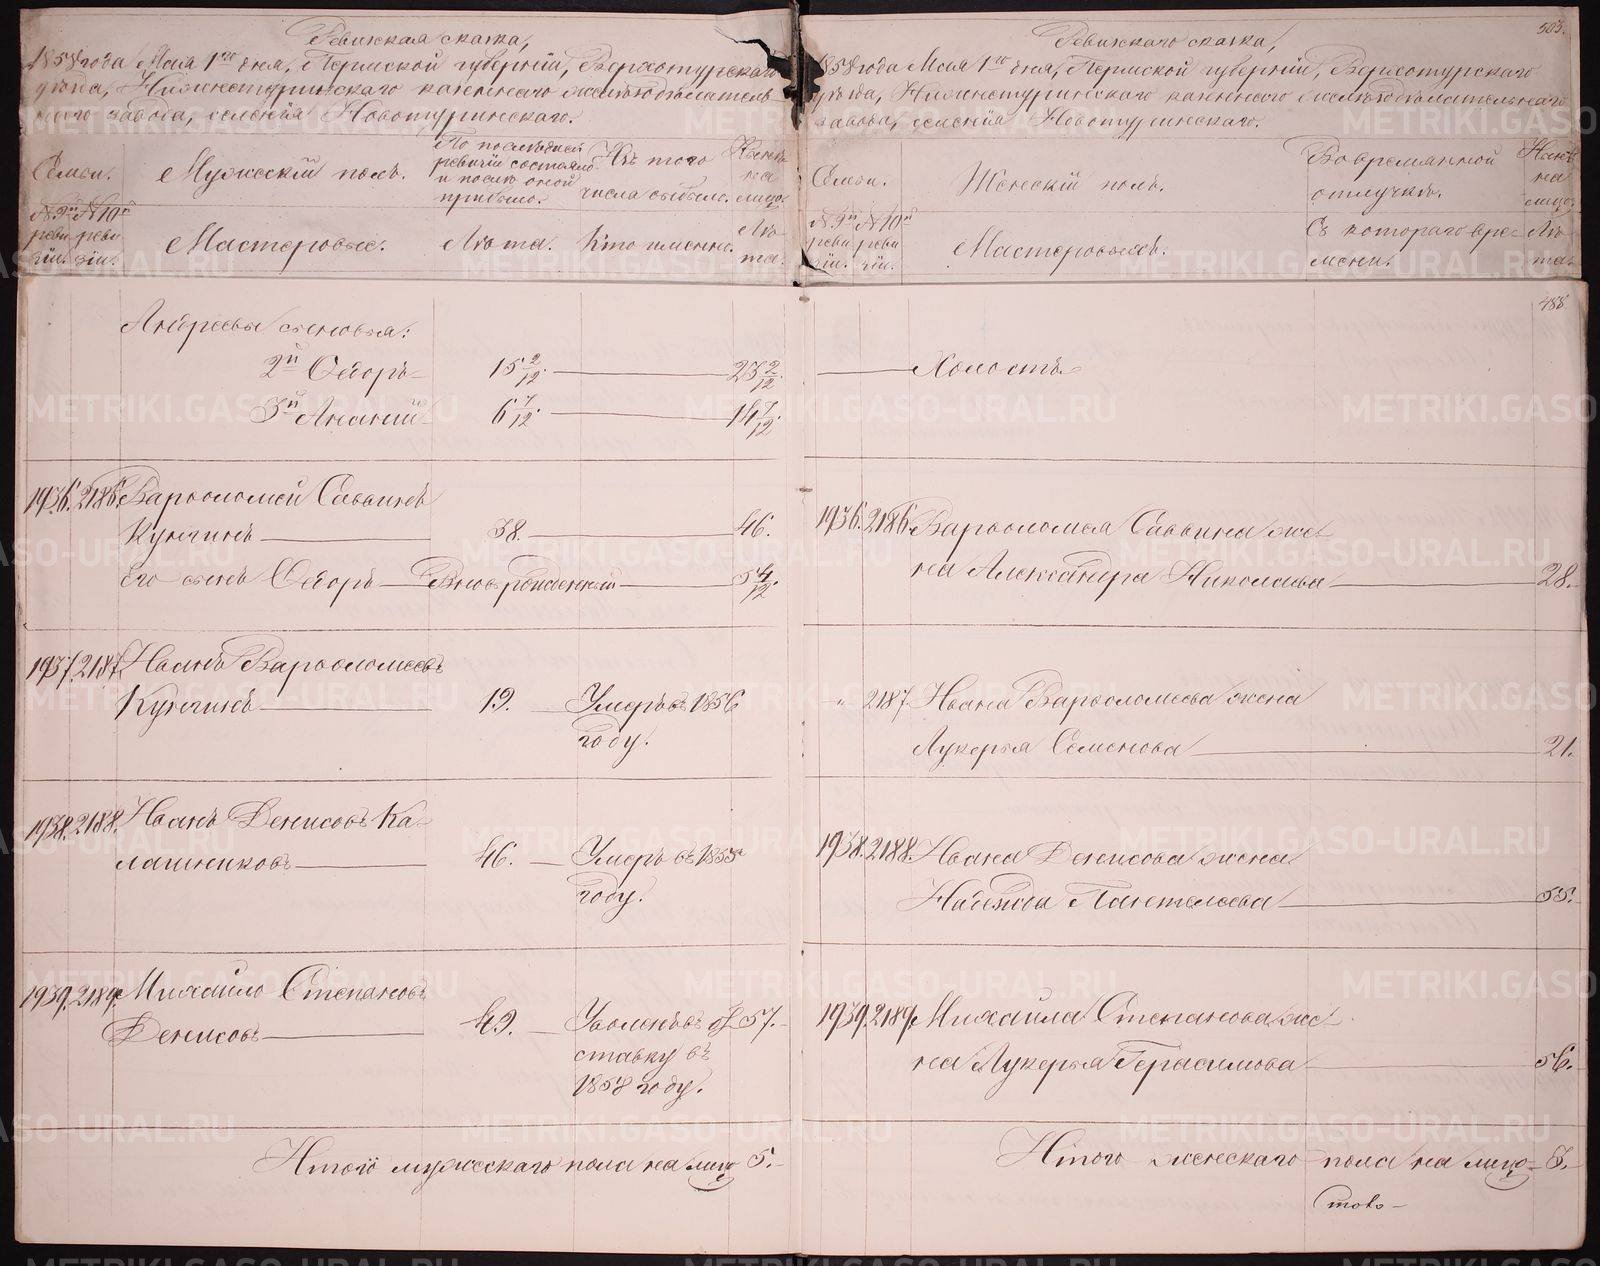 Ревижская сказка,
1858 года Мая 1го дня, Пермской губернiи, Верхотурскаго
уѣзда, Нижнетуринскаго казеннаго желѣзодѣлатель-
наго завода, селенiя Новотуринскаго.
Семьи.
Мужескiй полъ.
По послѣдней
ревизiи состояло
и послѣ оной
прибыло.
Изъ того
числа выбыло.
Нынѣ
на
лицо.
№ 9й № 10й
реви реви
зiи. зiи.
Мастеровые.
Лѣта.
Кто именно.
Лѣ-
та.
Андреевы сыновья:
2й Ѳедоръ 15 2/12. 23 2/12.
3й Ананiй 6 7/12. 14 7/12.
1936. 2186. Варѳоломей Саввинъ
38. 46.
Его сынъ Ѳедоръ Вновьрожденный 5 4/12.
1937. 2187. Иванъ Варѳоломеевъ
19. Умеръ въ 1856
году.
1938. 2188. Иванъ Денисовъ Ка-
лашниковъ 46. Умеръ въ 1855
году.
1939. 2189. Михайло Степановъ
Денисовъ 49. Уволенъ въ от- 57.
ставку въ
1858 году.
Итого мужескаго пола на лицо 5.
503.
Ревижская сказка,
1858 года Мая 1го дня, Пермской губернiи, Верхотурскаго
уѣзда, Нижнетуринскаго казеннаго желѣзодѣлательнаго
завода, селенiя Новотуринскаго.
Семьи.
Женскiй полъ.
Во временной
отлучкѣ.
Нынѣ
на
лицо.
№ 9й № 10й
реви реви
зiи. зiи.
Мастеровыхъ.
Съ котораго вре-
мени.
Лѣ-
та.
488
Холостъ.
1936. 2186. Варѳоломея Саввина же-
на Александра Николаева 28.
" 2187. Ивана Варѳоломеева жена
Лукерья Семенова 21.
1938. 2188. Ивана Денисова жена
Надежда Пантелеева 55.
1939. 2189. Михаила Степанова же-
на Лукерья Герасимова 56.
Итого женскаго пола на лицо
METRIKI.GASO-URAL.RU